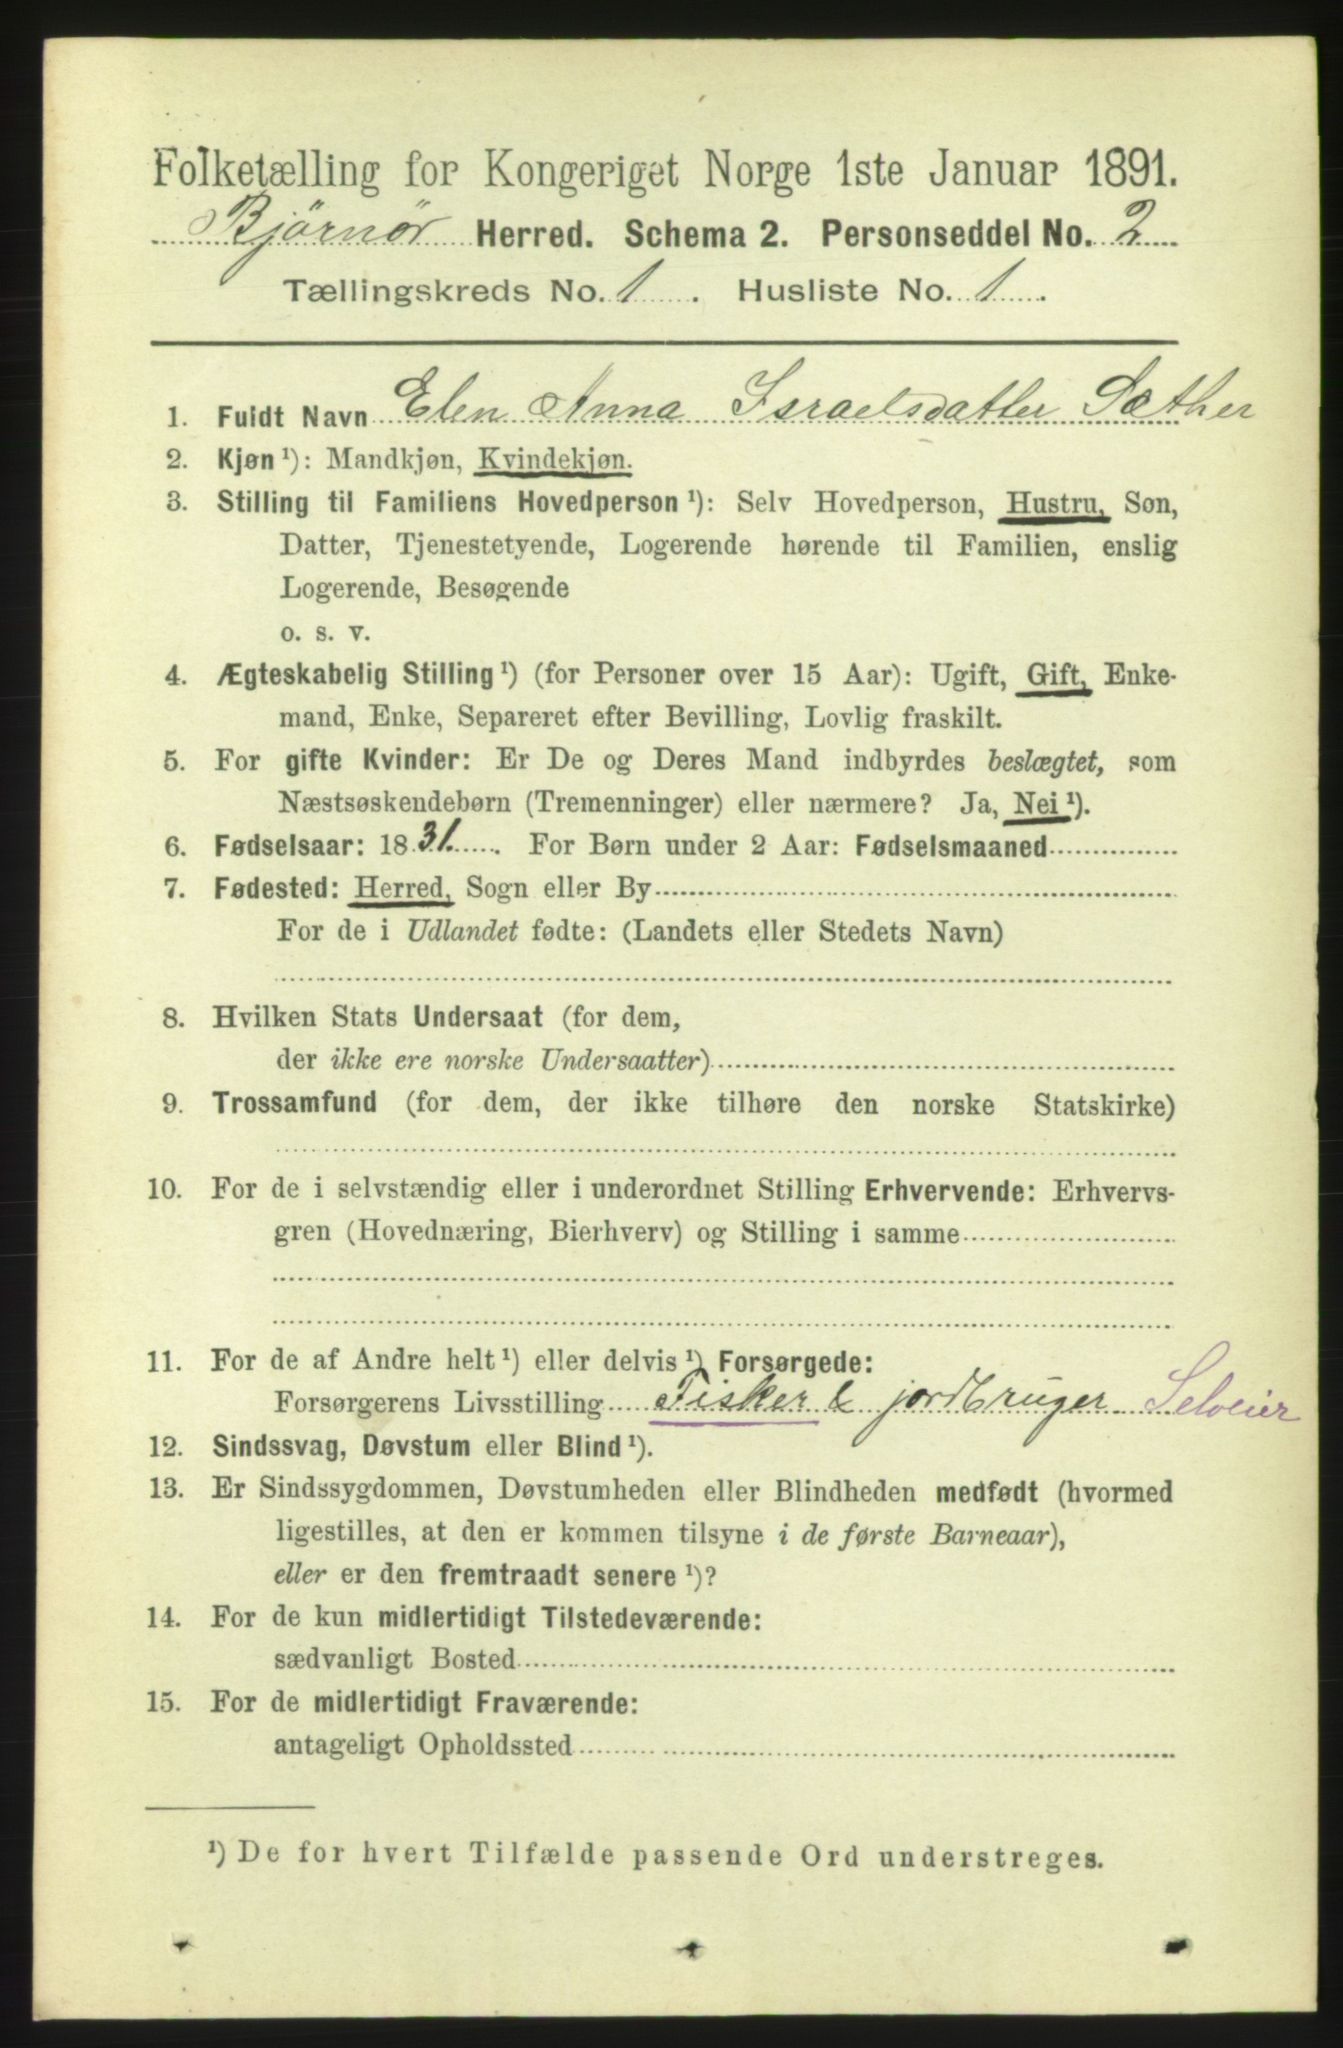 Folketælling for Kongeriget Norge 1ste Januar 1891.
Bjørnør Herred. Schema 2. Personseddel No. 2
Tællingskreds No. 1. Husliste No. 1.
1. Fuldt Navn Elen Anna Israelsdatter Sæther
2. Kjøn ¹): Mandkjøn, Kvindekjøn.
3. Stilling til Familiens Hovedperson ¹): Selv Hovedperson, Hustru, Søn,
Datter, Tjenestetyende, Logerende hørende til Familien, enslig
Logerende, Besøgende
o. s. v.
4. Ægteskabelig Stilling ¹) (for Personer over 15 Aar): Ugift, Gift, Enke-
mand, Enke, Separeret efter Bevilling, Lovlig fraskilt.
5. For gifte Kvinder: Er De og Deres Mand indbyrdes beslægtet, som
Næstsøskendebørn (Tremenninger) eller nærmere? Ja, Nei ¹).
6. Fødselsaar: 1831. For Børn under 2 Aar: Fødselsmaaned
7. Fødested: Herred, Sogn eller By
For de i Udlandet fødte: (Landets eller Stedets Navn)
8. Hvilken Stats Undersaat (for dem,
der ikke ere norske Undersaatter)
9. Trossamfund (for dem, der ikke tilhøre den norske Statskirke)
10. For de i selvstændig eller i underordnet Stilling Erhvervende: Erhvervs-
gren (Hovednæring, Bierhverv) og Stilling i samme
11. For de af Andre helt ¹) eller delvis ¹) Forsørgede:
Forsørgerens Livsstilling Fisker & jordbruger Selveier
12. Sindssvag, Døvstum eller Blind ¹).
13. Er Sindssygdommen, Døvstumheden eller Blindheden medfødt (hvormed
ligestilles, at den er kommen tilsyne i de første Barneaar),
eller er den fremtraadt senere ¹)?
14. For de kun midlertidigt Tilstedeværende:
sædvanligt Bosted
15. For de midlertidigt Fraværende:
antageligt Opholdssted
¹) De for hvert Tilfælde passende Ord understreges.